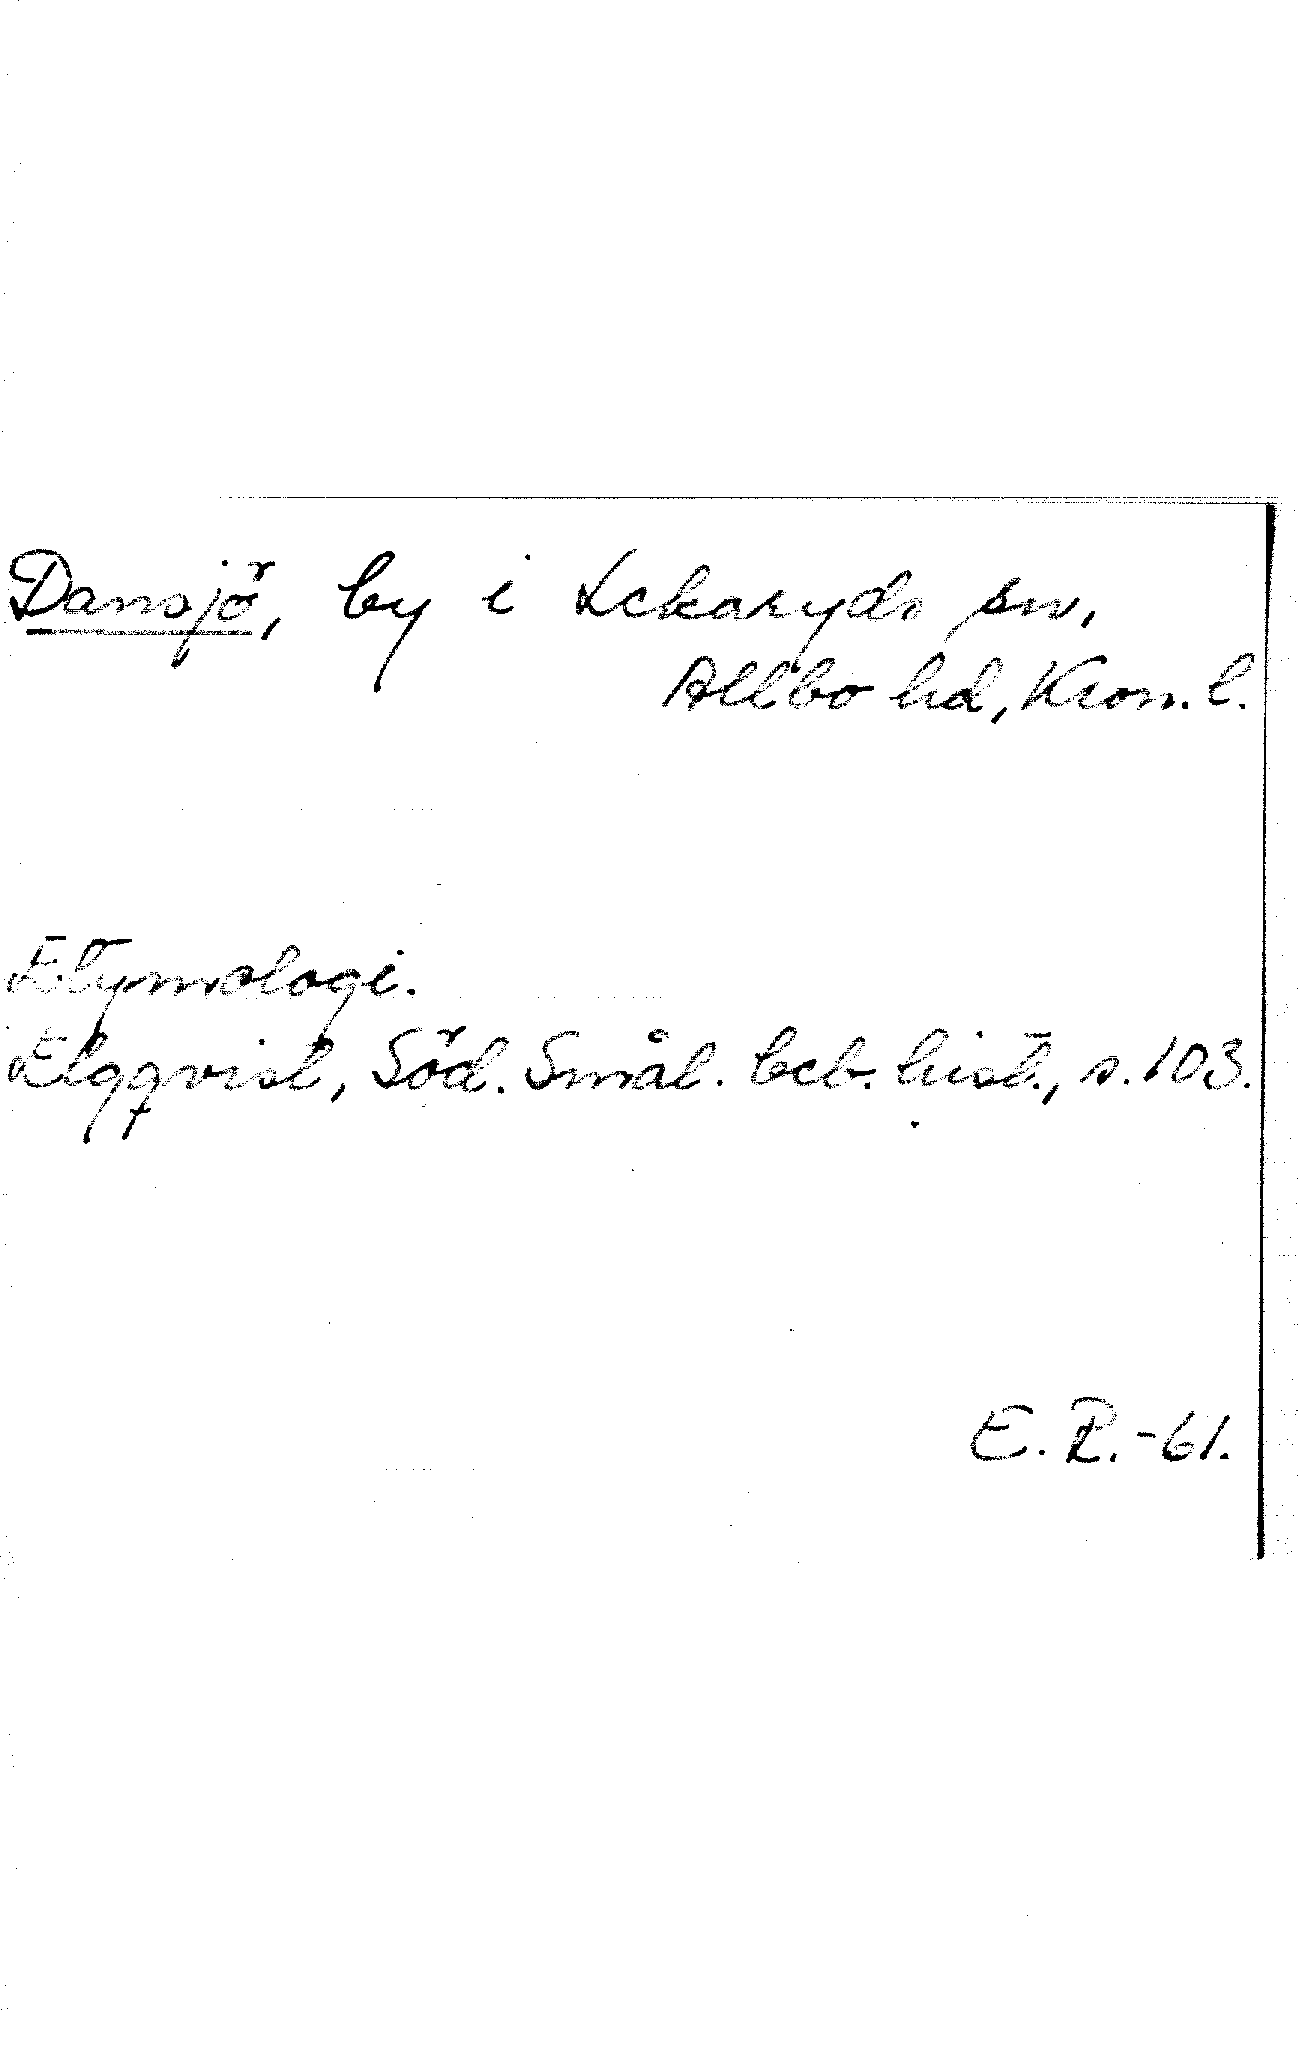 Dansjö, by i Lekaryds sn,
Allbo hd, Kron. l.
Etymologi.
Elgqvist, Söd. Smål. beb. hist., s. 103.
E. R. -61.